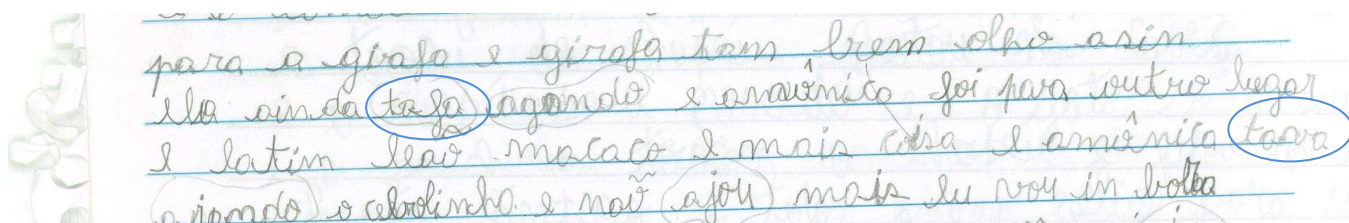 para a girafa e girafa tam brem olho asin
ela ainda tafa agando e amônica foi para outro lugar
e latim leaõ macaco e mais coisa e amônica tava
ajamdo o cebolinha e naõ ajou mais eu vou in bolba